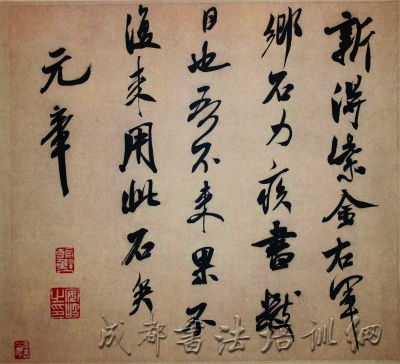 新得紫金右軍
鄉石力疾書數
日也吾不来果不
復来用此石矣
元章
成都書法培训网